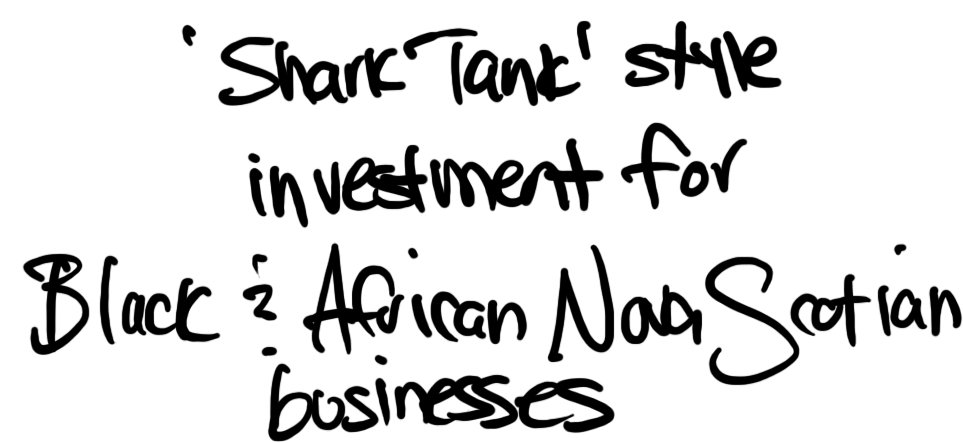 'Shark Tank' style
investment for
Black & African Nova Scotian
businesses